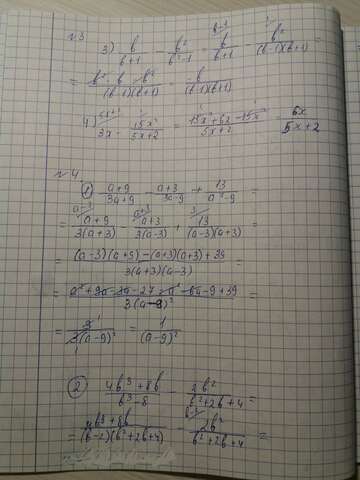 №3
3) b/(b+1) - b²/(b²-1) = b/(b+1) - b²/((b-1)(b+1)) =
= (b² - b - b²)/((b-1)(b+1)) = - b/((b-1)(b+1))
4) 3x - 15x²/(5x+2) = (15x²+6x-15x²)/(5x+2) = 6x/(5x+2)
№4
1) (a+9)/(3a+9) - (a+3)/(3a-9) + 13/(a²-9) =
= (a+9)/(3(a+3)) - (a+3)/(3(a-3)) + 13/((a-3)(a+3)) =
= ((a-3)(a+9)-(a+3)(a+3)+39)/(3(a+3)(a-3)) =
= (a²+9a-3a-27-a²-6a-9+39)/(3(a-9)²) =
= 3/(3(a-9)²) = 1/(a-9)²
2) (4b³+8b)/(b³-8) - 2b²/(b²+2b+4) =
= (4b³+8b)/((b-2)(b²+2b+4)) - 2b²/(b²+2b+4) =